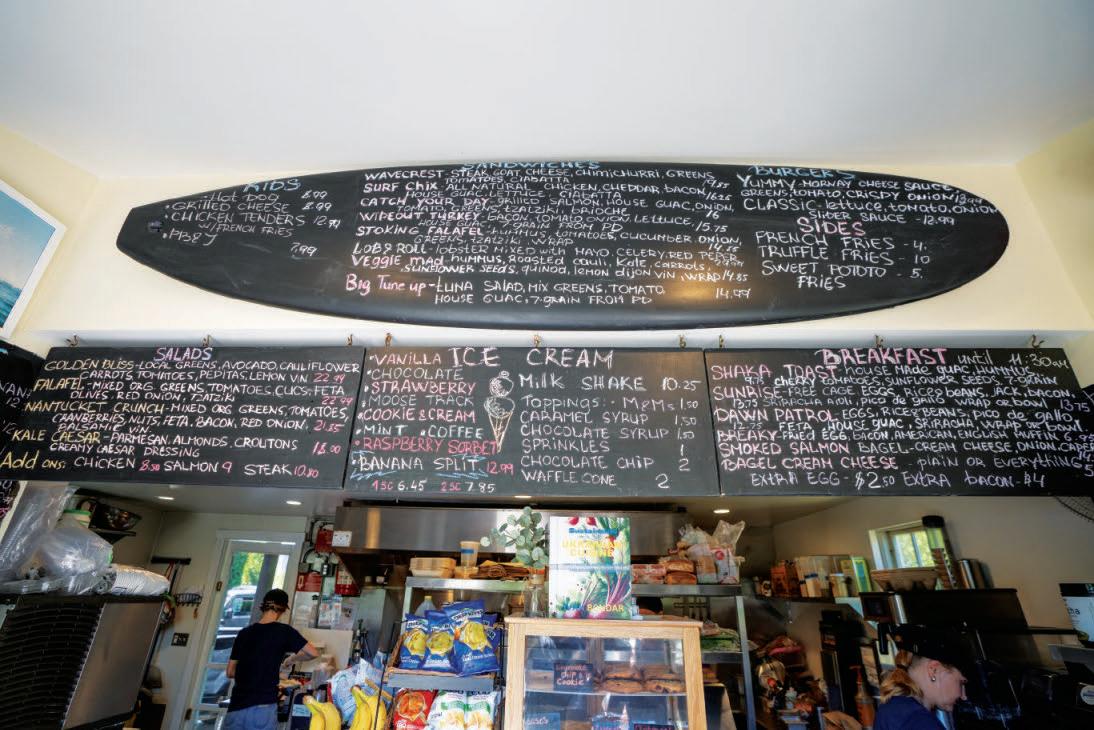 KIDS
Hot Dog 8.99
GRILLED CHEESE 8.99
CHICKEN TENDERS 12.99
W/FRENCH FRIES
PB&J 7.99
SANDWICHES
WAVECREST-STEAK, GOAT CHEESE, CHIMICHURRI, GREENS,
TOMATOES, CIABATTA 19.85
SURF CHIX-ALL NATURAL CHICKEN, CHEDDAR, BACON,
HOUSE GUAC, LETTUCE, CIABATTA
CATCH YOUR DAY-GRILLED SALMON, HOUSE GUAC, ONION,
TOMATO, GREENS, TZATZIKI, BRIOCHE 16
WIDEOUT TURKEY-BACON, TOMATO, ONION, LETTUCE,
HOUSE GUAC, 7-GRAIN FROM PD 15.75
STOKING FALAFEL-HUMMUS, TOMATOES, CUCUMBER, ONION,
GREENS, TZATZIKI, WRAP
LOBB ROLL-LOBSTER MIXED WITH MAYO, CELERY, RED PEPER
Veggie mad-hummus, Roasted cauli, Kale, carrots,
sunflower seeds, quinoa, lemon dijon vin, WRAP 14.85
Big Tune up-LUNA SALAD, MIX GREENS, TOMATO,
HOUSE GUAC, 7-GRAIN FROM PD 14.99
BURGERS
YUMMY-MORNAY CHEESE SAUCE,
GREENS, TOMATO, CRISPY ONION
CLASSIC-lettuce, tomato, onion
SLIDER SAUCE - 12.99
SIDES
FRENCH FRIES - 4.
TRUFFLE FRIES - 10
SWEET POTOTO - 5.
FRIES
SALADS
GOLDEN BLISS-LOCAL GREENS, AVOCADO, CAULIFLOWER
CARROTS, TOMATOES, PEPITAS, LEMON VIN 22.99
FALAFEL-MIXED ORG. GREENS, TOMATOES, CUKES, FETA
OLIVES, RED ONION, TZATZIKI 22.99
NANTUCKET CRUNCH-MIXED ORG. GREENS, TOMATOES,
CRANBERRIES, NUTS, FETA, BACON, RED ONION, 21.85
BALSAMIC
KALE CAESAR-PARMESAN, ALMONDS, CROUTONS
CREAMY CAESAR DRESSING 18.00
Add ons: CHICKEN 8.50 SALMON 9 STEAK 10.80
ICE CREAM
VANILLA
CHOCOLATE
STRAWBERRY
MOOSE TRACK
COOKIE & CREAM
MINT COFFEE
RASPBERRY SORBET
BANANA SPLIT 12.99
1SC 6.45 2SC 7.85
MILK SHAKE 10.25
Toppings: M&Ms 1.50
CARAMEL SYRUP 1.50
CHOCOLATE SYRUP 1.50
SPRINKLES 1
CHOCOLATE CHIP 2
WAFFLE CONE 2
BREAKFAST until 11:30am
SHAKA TOAST-HOUSE MADE GUAC, HUMMUS,
9.75 CHERRY TOMATOES, SUNFLOWER SEEDS, 7-GRAIN
SUNRISE-FREE CAGE EGGS, RICE, BEANS, JACK, BACON,
SRIRACHA AIOLI, pico de gallo, WRAP OR bowl 13.75
DAWN PATROL-EGGS, RICE & BEANS, pico de gallo
FETA, HOUSE GUAC, SRIRACHA, WRAP OR bowl
BREAKY-FRIED EGG, BACON, AMERICAN, ENGLISH MUFFIN
SMOKED SALMON BAGEL-CREAM CHEESE, ONION,
BAGEL CREAM CHEESE PLAIN OR EVERYTHING
EXTRA EGG-$2.50 EXTRA BACON-$4
UKRAINIAN
CUISINE
BONDAR
CHIP
COOKIE